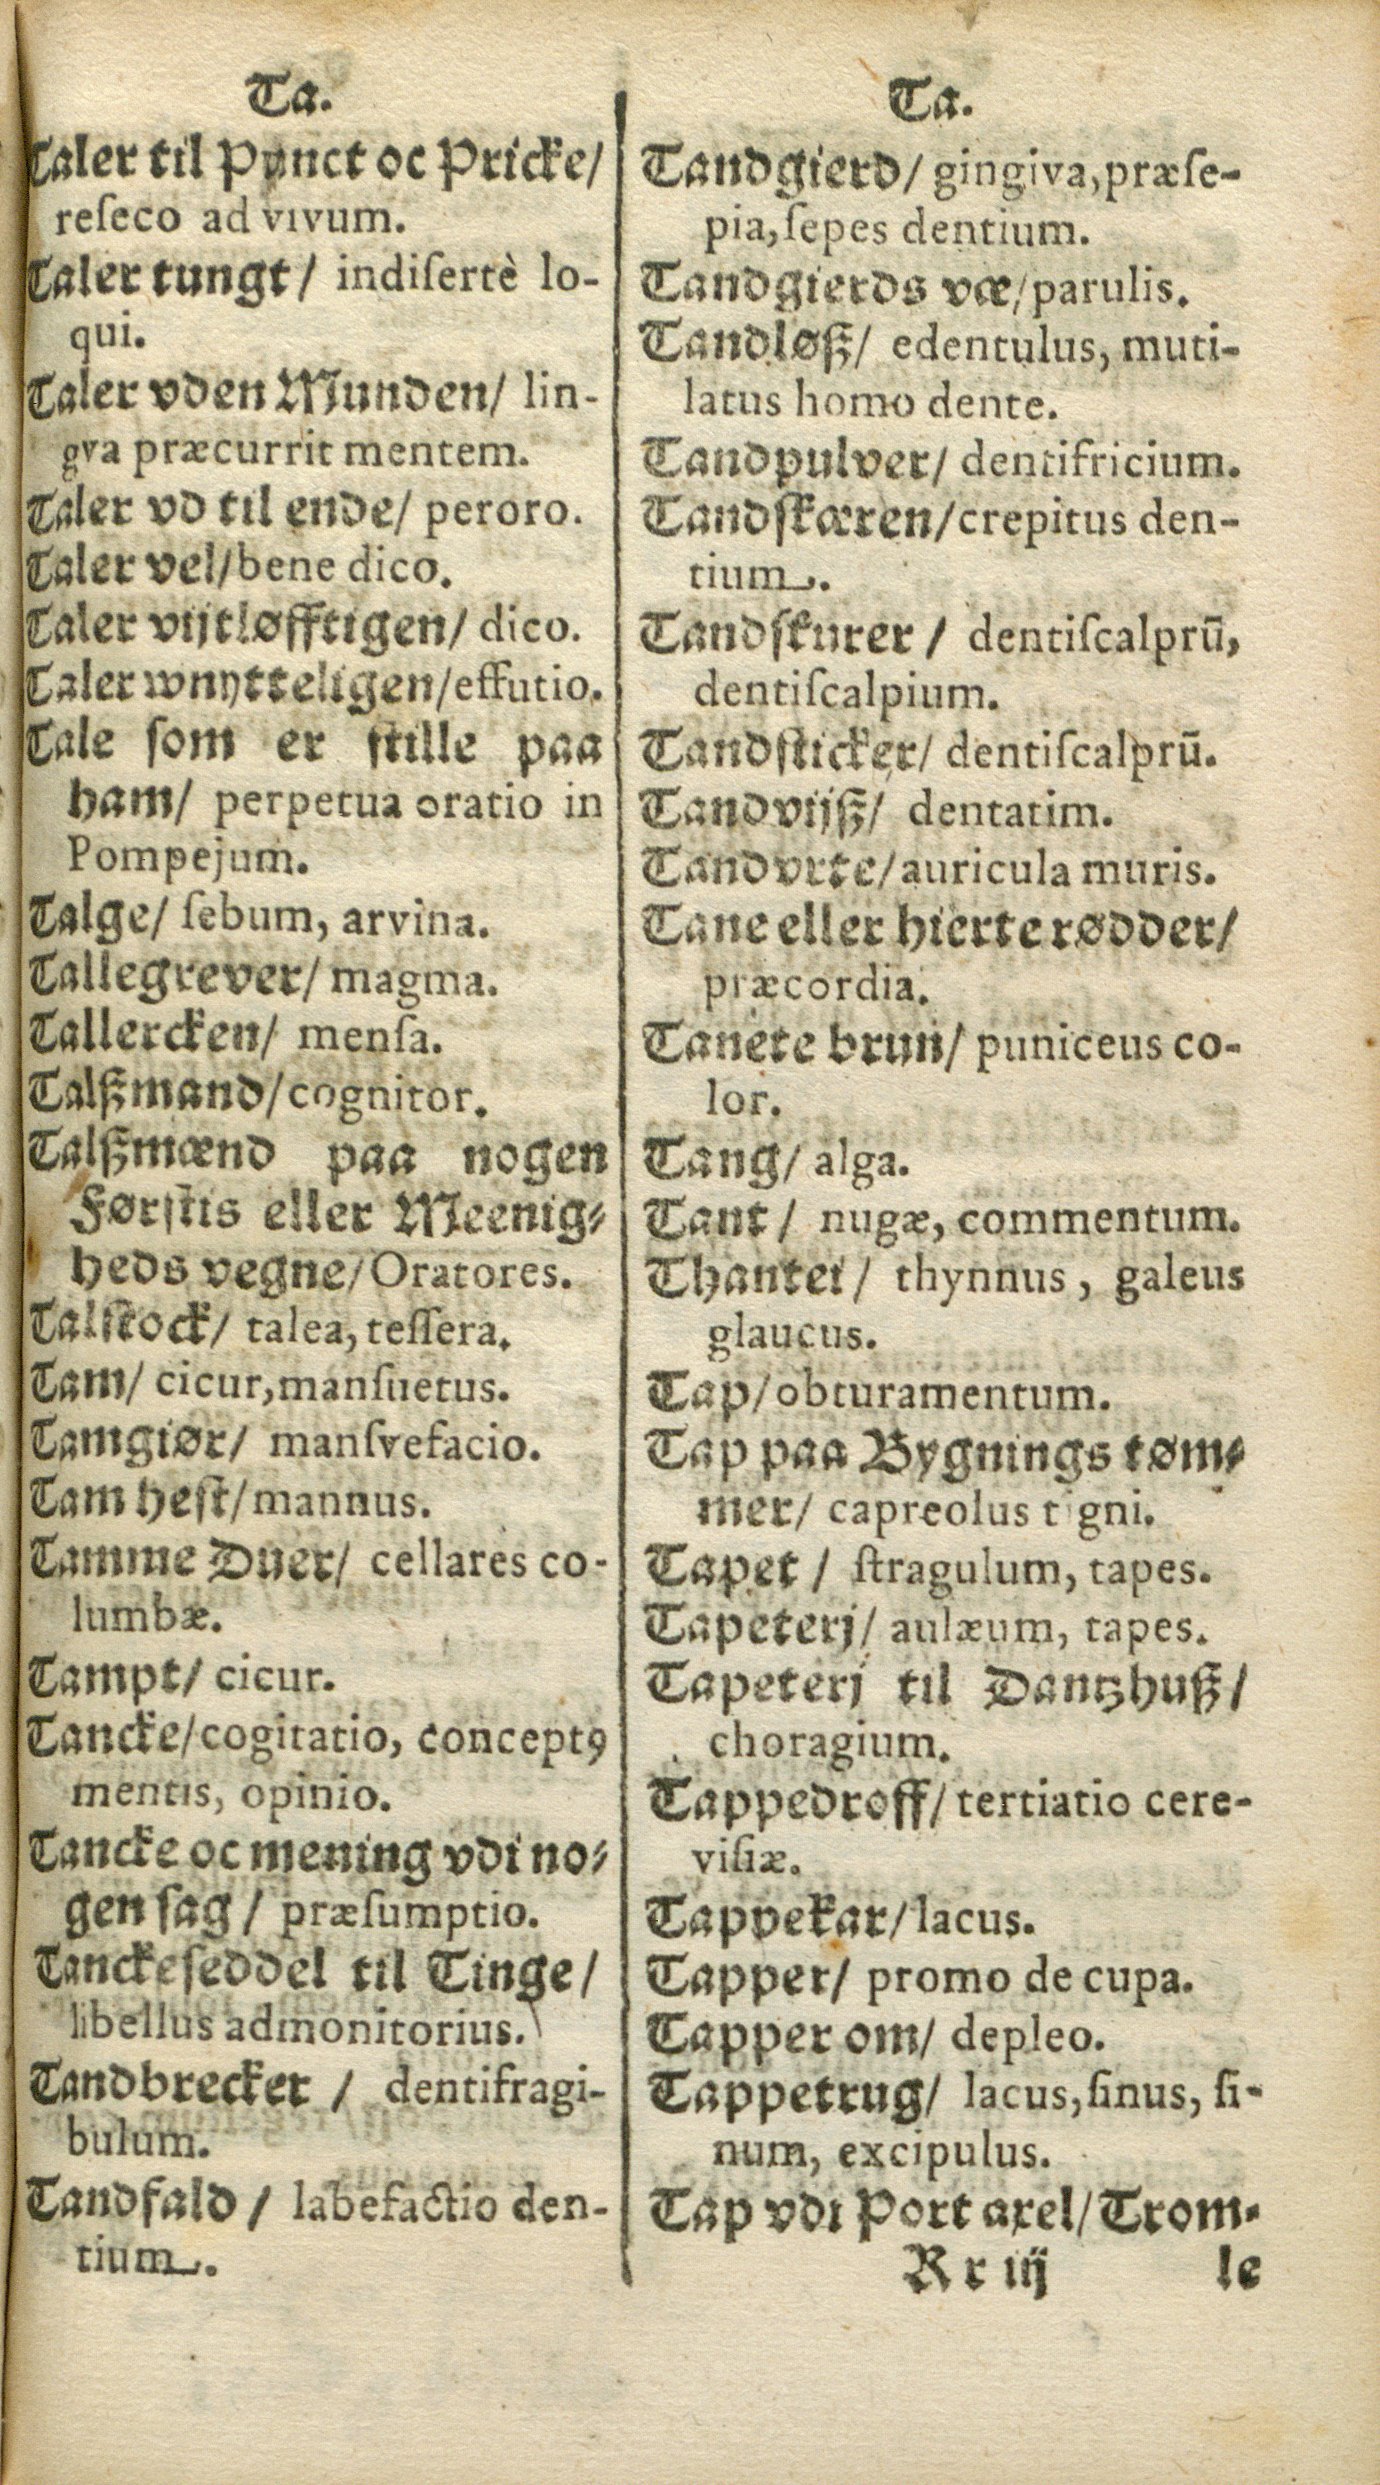 Ta.
Taler til Pynct oc Pricke/
reſeco ad vivum.
Taler tungt/ indiſertè lo-
qui.
Taler vden Munden/ lin-
gva præcurrit mentem.
Taler vd til ende/ peroro.
Taler vel/bene dico.
Taler vijtløfftigen/ dico.
Taler wnytteligen/effutio.
Tale ſom er ſtille paa
ham/ perpetua oratio in
Pompejum.
Talge/ ſebum, arvina.
Tallegrever/ magma.
Tallercken/ menſa.
Talßmand/cognitor.
Talßmænd paa nogen
Førſtis eller Meenig-
heds vegne/Oratores.
Talſtock/ talea, teſſera.
Tam/ cicur,manſuetus.
Tamgiør/ manſvefacio.
Tam heſt/mannus.
Tamme Duer/ cellares co-
lumbæ.
Tampt/ cicur.
Tancke/cogitatio, conceptꝯ
mentis, opinio.
Tancke oc mening vdi no-
gen ſag/ præſumptio.
Tanckeſeddel til Tinge/
libellus admonitorius.
Tandbrecker / dentifragi-
bulum.
Tandfald / labefactio den-
tium.
Ta.
Tandgierd/ gingiva,præſe-
pia,ſepes dentium.
Tandgierds væ/parulis.
Tandløß/ edentulus, muti-
latus homo dente.
Tandpulver/ dentifricium.
Tandſkæren/crepitus den-
tium.
Tandſkurer / dentiſcalprū,
dentiſcalpium.
Tandſticker/ dentiſcalprū.
Tandvijß/ dentatim.
Tandvrte/auricula muris.
Tane eller hierterødder/
præcordia.
Tanete brun/ puniceus co-
lor.
Tang/ alga.
Tant/ nugæ, commentum.
Thantei/ thynnus, galeus
glaucus.
Tap/obturamentum.
Tap paa Bygnings tøm-
mer/ capreolus tigni.
Tapet / ſtragulum, tapes.
Tapeterj/ aulæum, tapes.
Tapeterj til Dantzhuß/
choragium.
Tappedroff/tertiatio cere-
viſiæ.
Tappekar/lacus.
Tapper/ promo de cupa.
Tapper om/ depleo.
Tappetrug/ lacus,ſinus, ſi-
num, excipulus.
Tap vdi Port axel/Trom-
Rr iij le